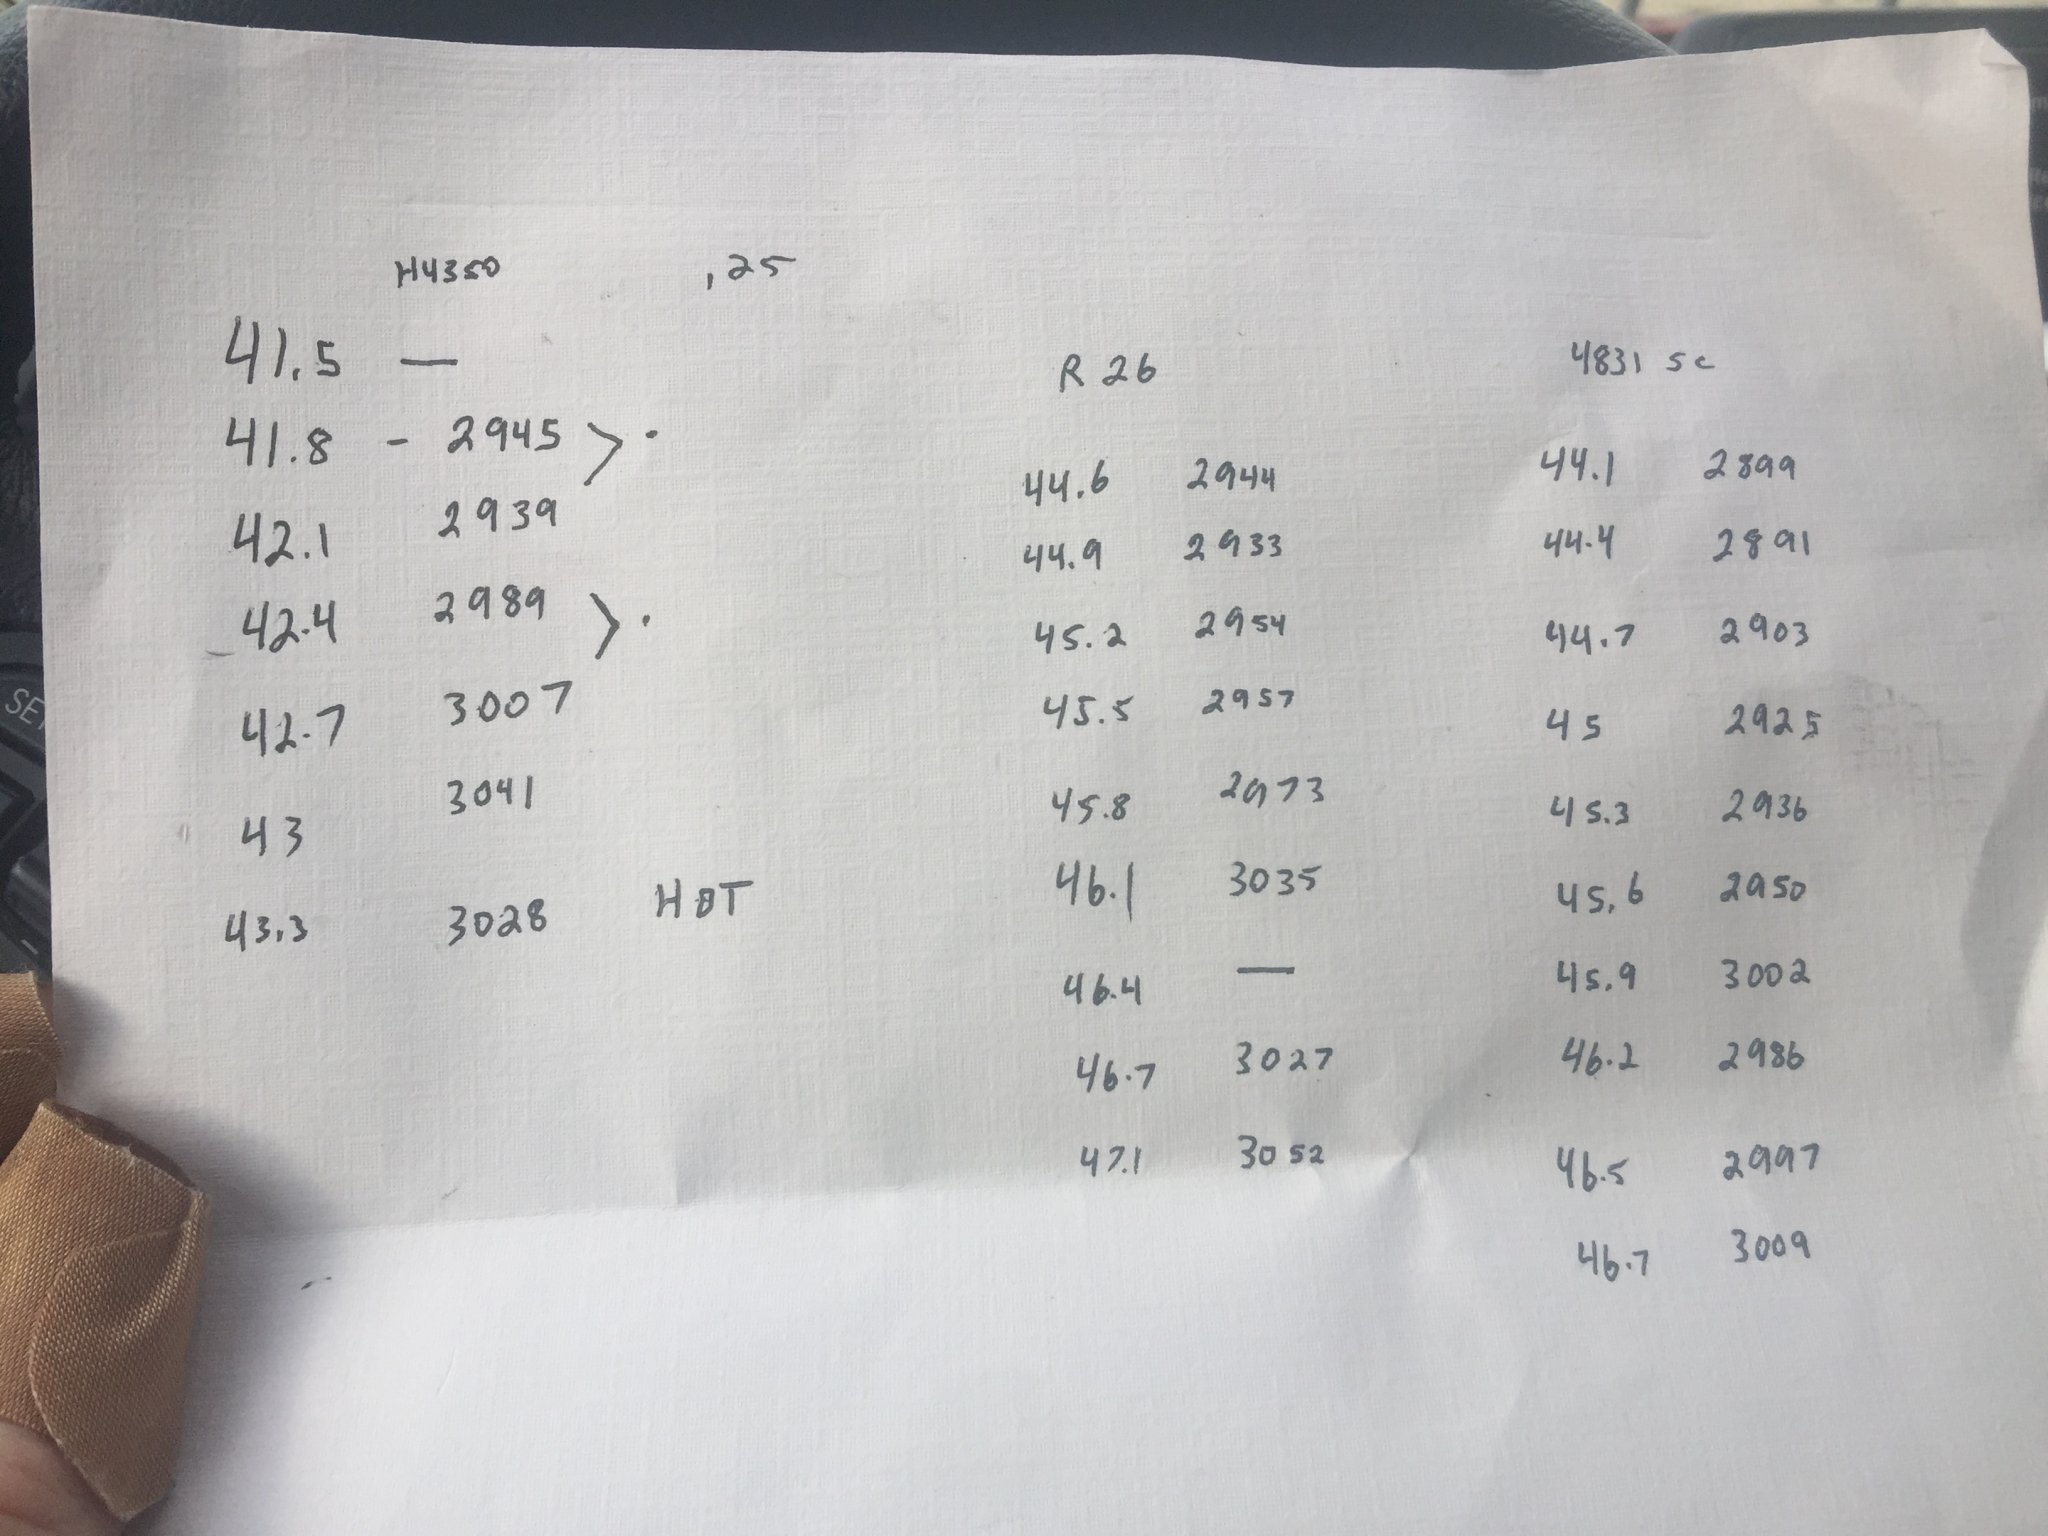 H4350 .25
41.5 —
41.8 - 2945 > .
42.1 2939
42.4 2989 > .
42.7 3007
43 3041
43.3 3028 HOT
R 26
44.6 2944
44.9 2933
45.2 2954
45.5 2957
45.8 2973
46.1 3035
46.4 —
46.7 3027
47.1 3052
4831 SC
44.1 2899
44.4 2891
44.7 2903
45 2925
45.3 2936
45.6 2950
45.9 3002
46.2 2986
46.5 2997
46.7 3009